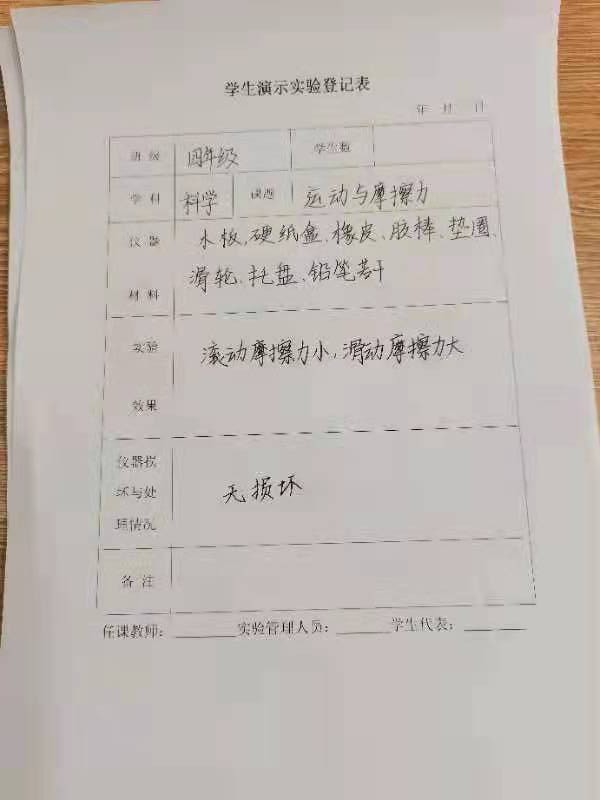 学生演示实验登记表
年 月 日
班 级 四年级 学生数
学 科 科学 课题 运动与摩擦力
仪 器 木板、硬纸盒、橡皮、胶棒、垫圈、
材 料 滑轮、托盘、铅笔若干
实验 滚动摩擦力小,滑动摩擦力大
效果
仪器损
坏与处 无损坏
理情况
备 注
任课教师: 实验管理人员: 学生代表: